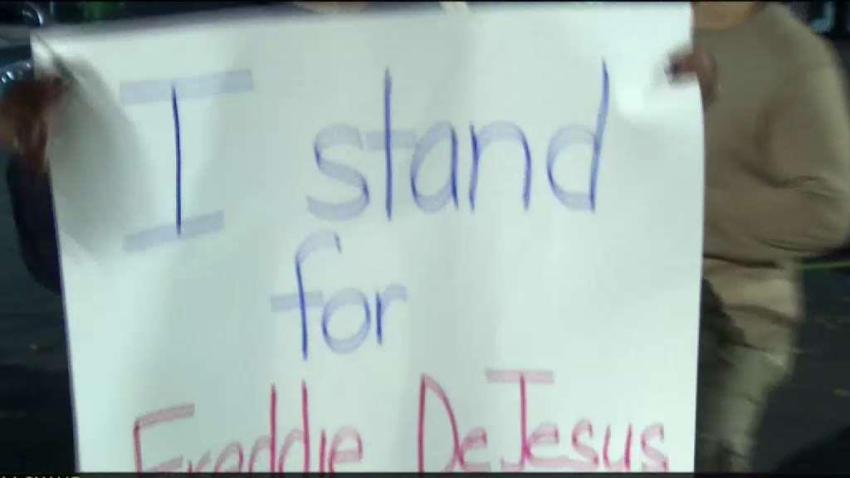 I stand
for
Freddie DeJesus